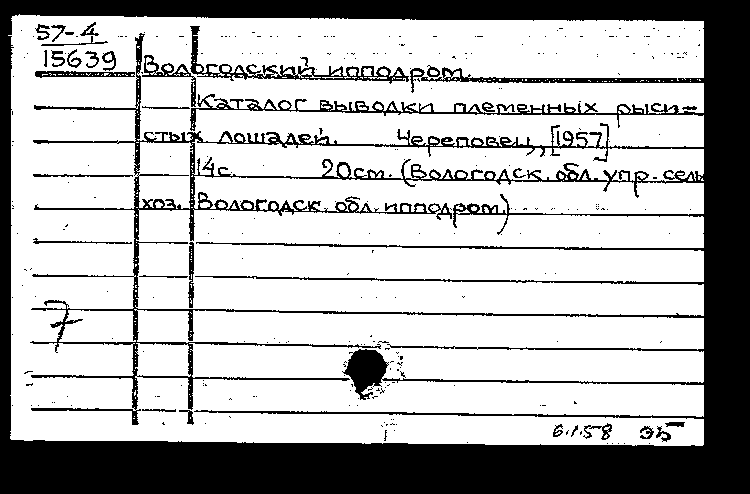 57-4
15639
Вологодский ипподром.
Каталог выводки племенных рыси=
стых лошадей. Череповец, [1957]
14с. 20см. (Вологодск. обл. упр. сель
хоз. Вологодск. обл. ипподром)
7
6.1.58 ЭБ